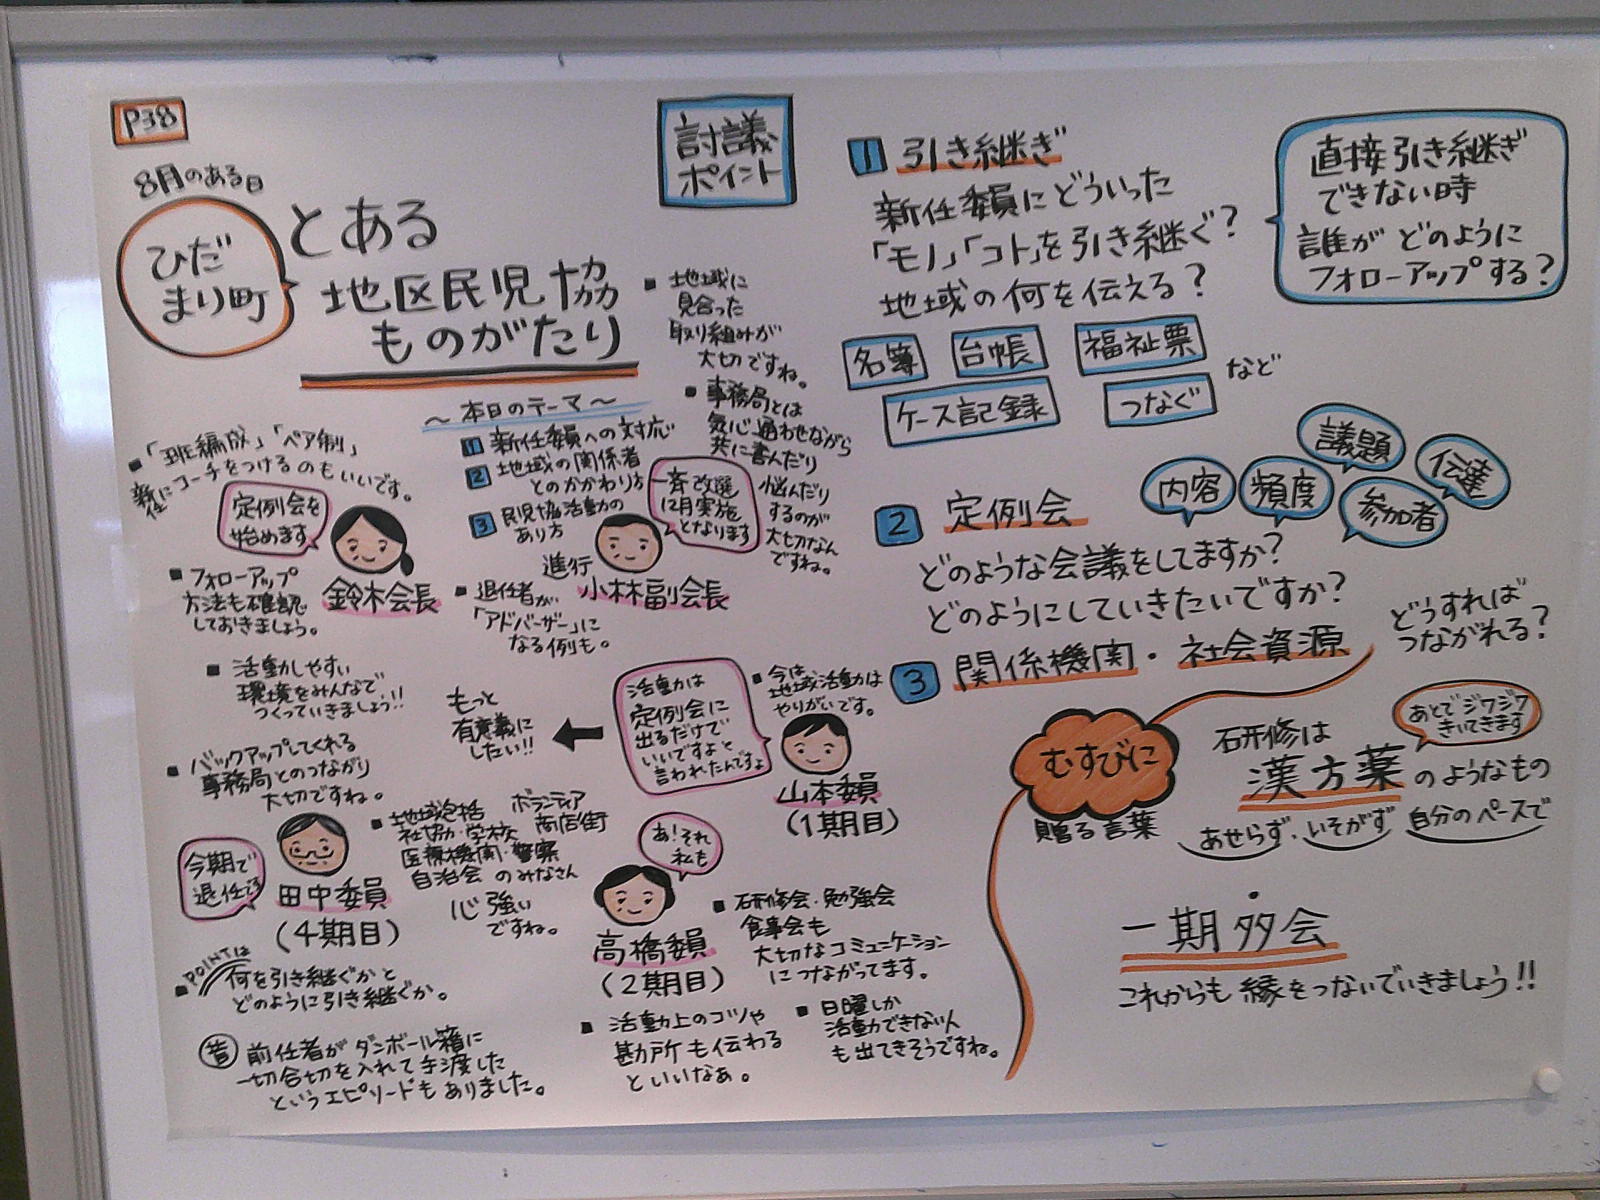 P38
8月のある日
ひだ
まり町
とある
地区民児協
ものがたり
〜本日のテーマ〜
1 新任委員への対応
2 地域の関係者
とのかかわり方
3 民児協活動の
あり方
■「班編成」「ペア制」
新任にコーチをつけるのもいいです。
定例会を
始めます
鈴木会長
進行
小林副会長
一斉改選
12月実施
となります
■地域に
見合った
取り組みが
大切ですね。
■事務局とは
気心通わせながら
共に喜んだり
悩んだり
するのが
大切なん
ですね。
■フォローアップ
方法も確認
しておきましょう。
■退任者が
「アドバーザー」に
なる例も。
■活動しやすい
環境をみんなで
つくっていきましょう!!
もっと
有意義に
したい!!
活動は
定例会に
出るだけで
いいですよと
言われたんですよ
■今は
地域活動は
やりがいです。
山本委員
(1期目)
■バックアップしてくれる
事務局とのつながり
大切ですね。
今期で
退任です
田中委員
(4期目)
■地域包括 ボランティア
社協・学校 商店街
医療機関・警察
自治会のみなさん
心強い
ですね。
あ!それ
私も
高橋委員
(2期目)
■研修会・勉強会
食事会も
大切なコミュニケーション
につながってます。
■POINTは
何を引き継ぐかと
どのように引き継ぐか。
昔 前任者がダンボール箱に
一切合切を入れて手渡した
というエピソードもありました。
■活動上のコツや
勘所も伝わる
といいなぁ。
■日曜しか
活動できない人
も出てきそうですね。
討議
ポイント
1 引き継ぎ
新任委員にどういった
「モノ」「コト」を引き継ぐ?
地域の何を伝える?
直接引き継ぎ
できない時
誰がどのように
フォローアップする?
名簿 台帳 福祉票
ケース記録 つなぐ など
2 定例会
内容 頻度 議題 参加者 伝達
どのような会議をしてますか?
どのようにしていきたいですか?
3 関係機関・社会資源
どうすれば
つながれる?
むすびに
贈る言葉
研修は
漢方薬のようなもの
あとでジワジワ
きいてきます
あせらず、いそがず 自分のペースで
一期多会
これからも縁をつないでいきましょう!!